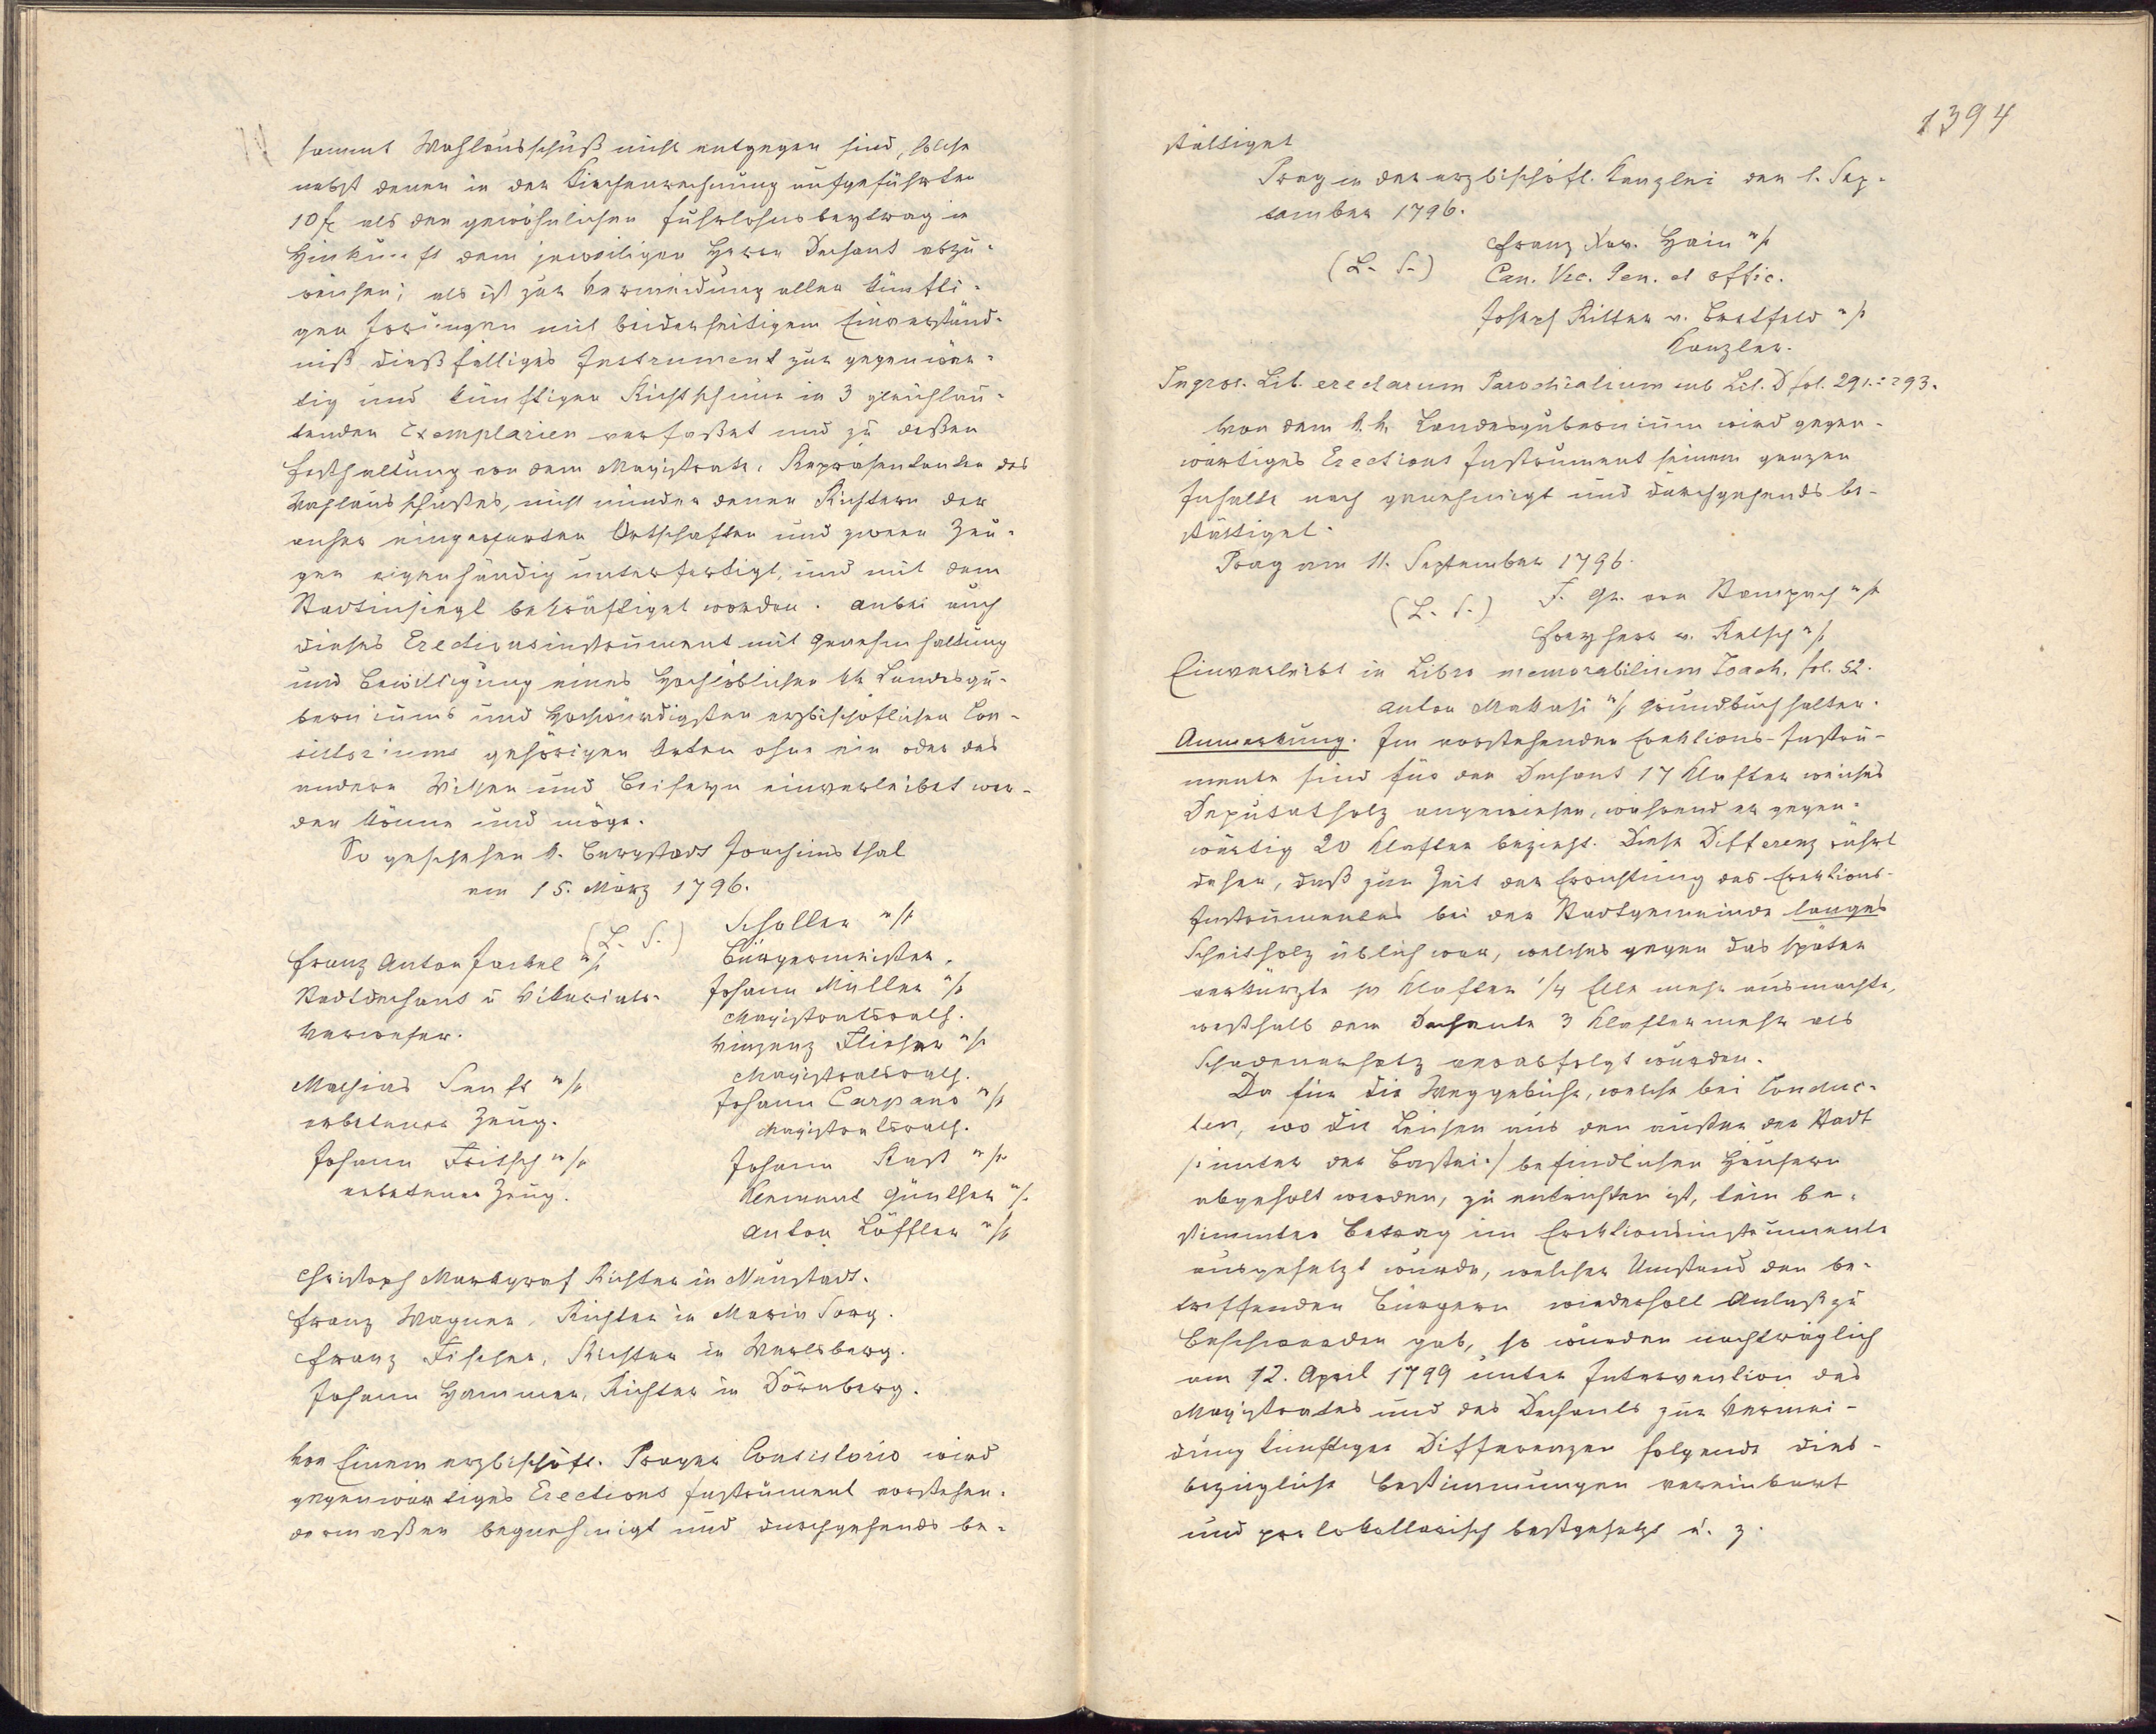 sammt Wahlausschuß nicht entgegen sind, solche
nebst denen in der Kirchenrechnung aufgeführten
10 f als den gewöhnlichen Fuhrlohnsbeytrag in
Hinkunft dem jeweiligen Herrn Dechant abzu-
reichen; als ist zur Vermeidung aller künfti-
gen Irrungen mit beiderseitigem Einverständ-
niß dießfälliges Instrument zur gegenwär-
tig und künftigen Richtschnur in 3 gleichlau-
tenden Exemplarien verfaßet und zu deßen
Festhaltung von dem Magistrate, Repräsentanten des
Wahlausschußes, nicht minder denen Richtern der
anher eingepfarrten Ortschaften und zween Zeu-
gen eigenhändig unterfertigt, und mit dem
Stadtinsiegl bekräftiget worden. Anbei auch
dieses Erectionsinstrument mit Genehmhaltung
und Bewilligung eines Hochlöblichen kk Landesgu-
berniums und Hochwürdigsten erzbischöflichen Con-
sistoriums gehörigen Orten ohne ein oder des
andern Wissen und Beiseyn einverleibet wer-
den könne und möge.
So geschehen k. Bergstadt Joachimsthal
am 15. März 1796.
(L. S.)
Franz Anton Jackel m/p
Stadtdechant u Vikariats-
Verweser.
Mathias Senft m/p
erbetener Zeug.
Johann Fritsch m/p
erbetener Zeug.
Scholler m/p
Bürgermeister.
Johann Müller m/p
Magistratsrath.
Vinzenz Flieher m/p
Magistratsrath.
Johann Carpano m/p
Magistratsrath.
Johann Rast m/p
Klement Günther m/p
Anton Löffler m/p
Christoph Markgraf Richter in Neustadt.
Franz Wagner, Richter in Maria Sorg.
Franz Fischer, Richter in Werlsberg.
Johann Hammer, Richter in Dürnberg.
Von Einem erzbischöfl. Prager Consistorio wird
gegenwärtiges Erections Instrument vorstehen-
dermaßen begnehmigt und durchgehends be-
1394
stättiget
Prag in der erzbischöfl. Kanzlei den 1. Sep-
tember 1796.
Franz Xav. Hain m/p
(L. S.) Can. Vic. Gen. et offic.
Joseph Ritter v. Bretfeld m/p
Kanzler.
Ingros. Lib. erectarum Parochialium sub Lit. D fol. 291.:293.
Von dem k.k. Landesgubernium wird gegen-
wärtiges Erections Instrument seinem ganzen
Inhalte nach genehmigt und durchgehends be-
stättiget.
Prag am 11. September 1796.
(L. S.) F. Gr. von Stampach m/p
Freyherr v. Retsch m/p
Einverleibt in Libro memorabilium Joach. fol. 52.
Anton Makasi m/p Grundbuchhalter.
Anmerkung. Im vorstehenden Erektions-Instru-
mente sind für den Dechant 17 Klafter weiches
Deputatholz angewiesen, während er gegen-
wärtig 20 Klafter bezieht. Diese Differenz rührt
daher, daß zur Zeit der Errichtung des Erektions-
Instrumentes bei der Stadtgemeinde langes
Scheitholz üblich war, welches gegen das später
verkürzte pr Klafter 1/4 Elle mehr ausmachte,
weßhalb dem Dechante 3 Klafter mehr als
Schadenersatz verabfolgt wurden.
Da für die Weggebühr, welche bei Conduc-
ten, wo die Leichen aus den außer der Stadt
/:unter der Bastei:/ befindlichen Häusern
abgeholt werden, zu entrichten ist, kein be-
stimmter Betrag im Erektionsinstrumente
ausgesetzt wurde, welcher Umstand den be-
treffenden Bürgern wiederholt Anlaß zu
Beschwerden gab, so wurden nachträglich
am 12. April 1799 unter Intervention des
Magistrates und des Dechants zur Vermei-
dung künftiger Differenzen folgende dies-
bezügliche Bestimmungen vereinbart
und protokollarisch festgesetzt u. z.